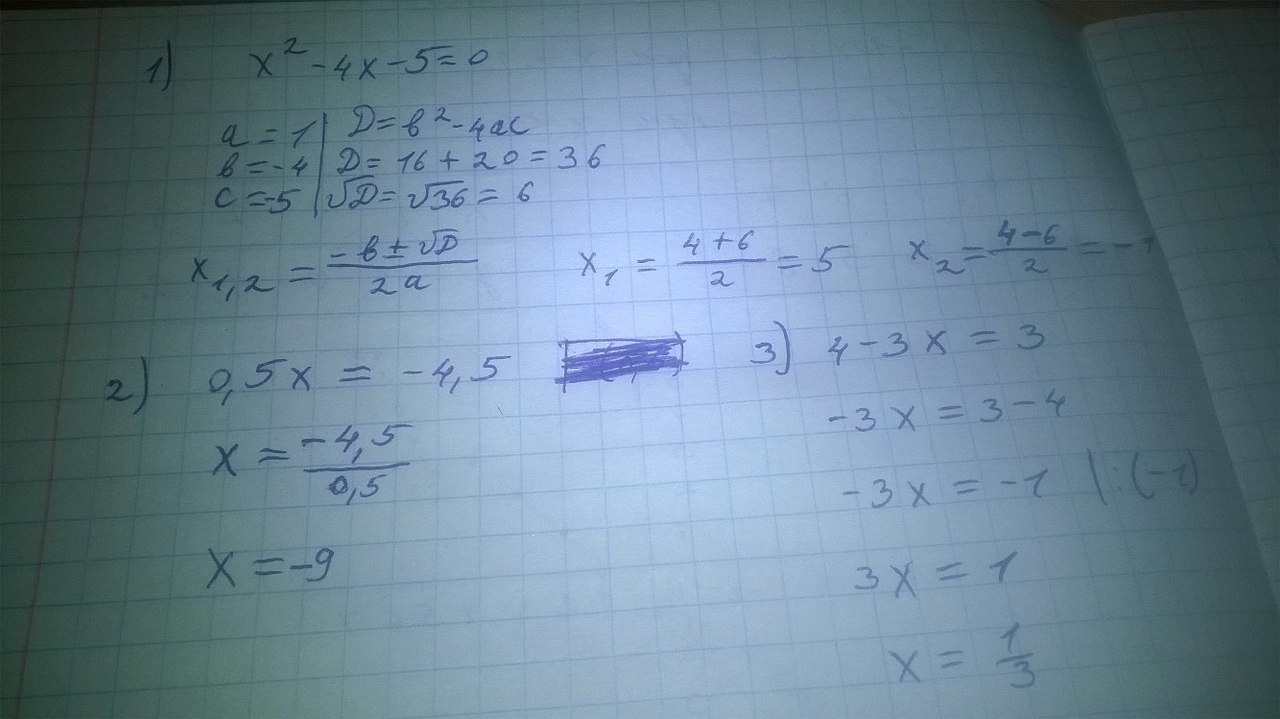 1) x² - 4x - 5 = 0
a = 1 | D = b² - 4ac
b = -4 | D = 16 + 20 = 36
c = -5 | √D = √36 = 6
x₁,₂ = (-b ± √D)/(2a) x₁ = (4 + 6)/2 = 5 x₂ = (4 - 6)/2 = -1
2) 0,5x = -4,5
x = (-4,5)/(0,5)
x = -9
3) 4 - 3x = 3
-3x = 3 - 4
-3x = -1 | :(-1)
3x = 1
x = 1/3